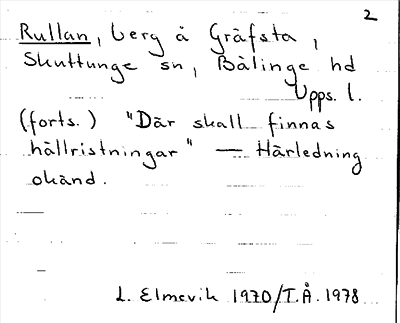 2
Rullan, berg å Gräfsta,
Skuttunge sn, Bälinge hd
Upps. l.
(forts.) "Där skall finnas
hällristningar" — Härledning
okänd.
L. Elmevik 1970/T.Å. 1978